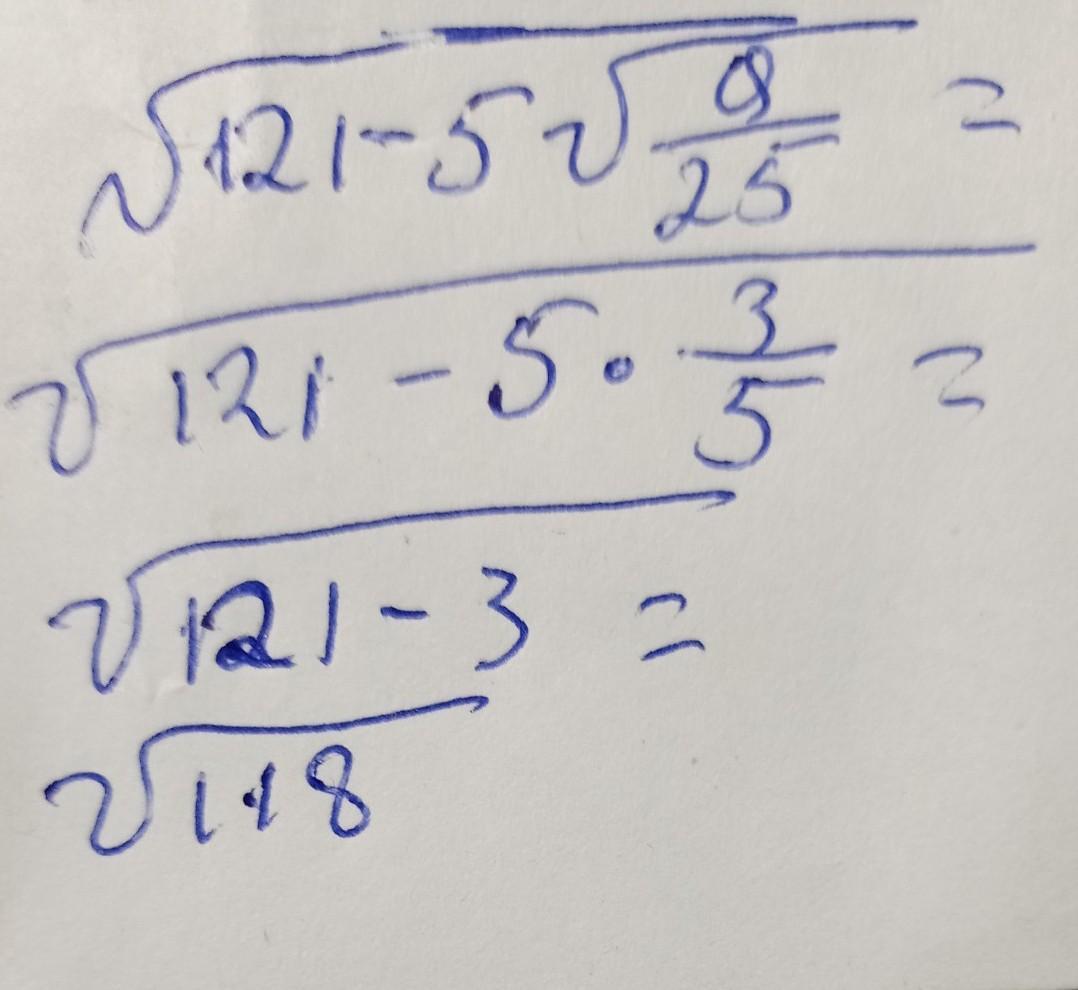 √121-5√9/25 =
√121 - 5 · 3/5 =
√121 - 3 =
√118